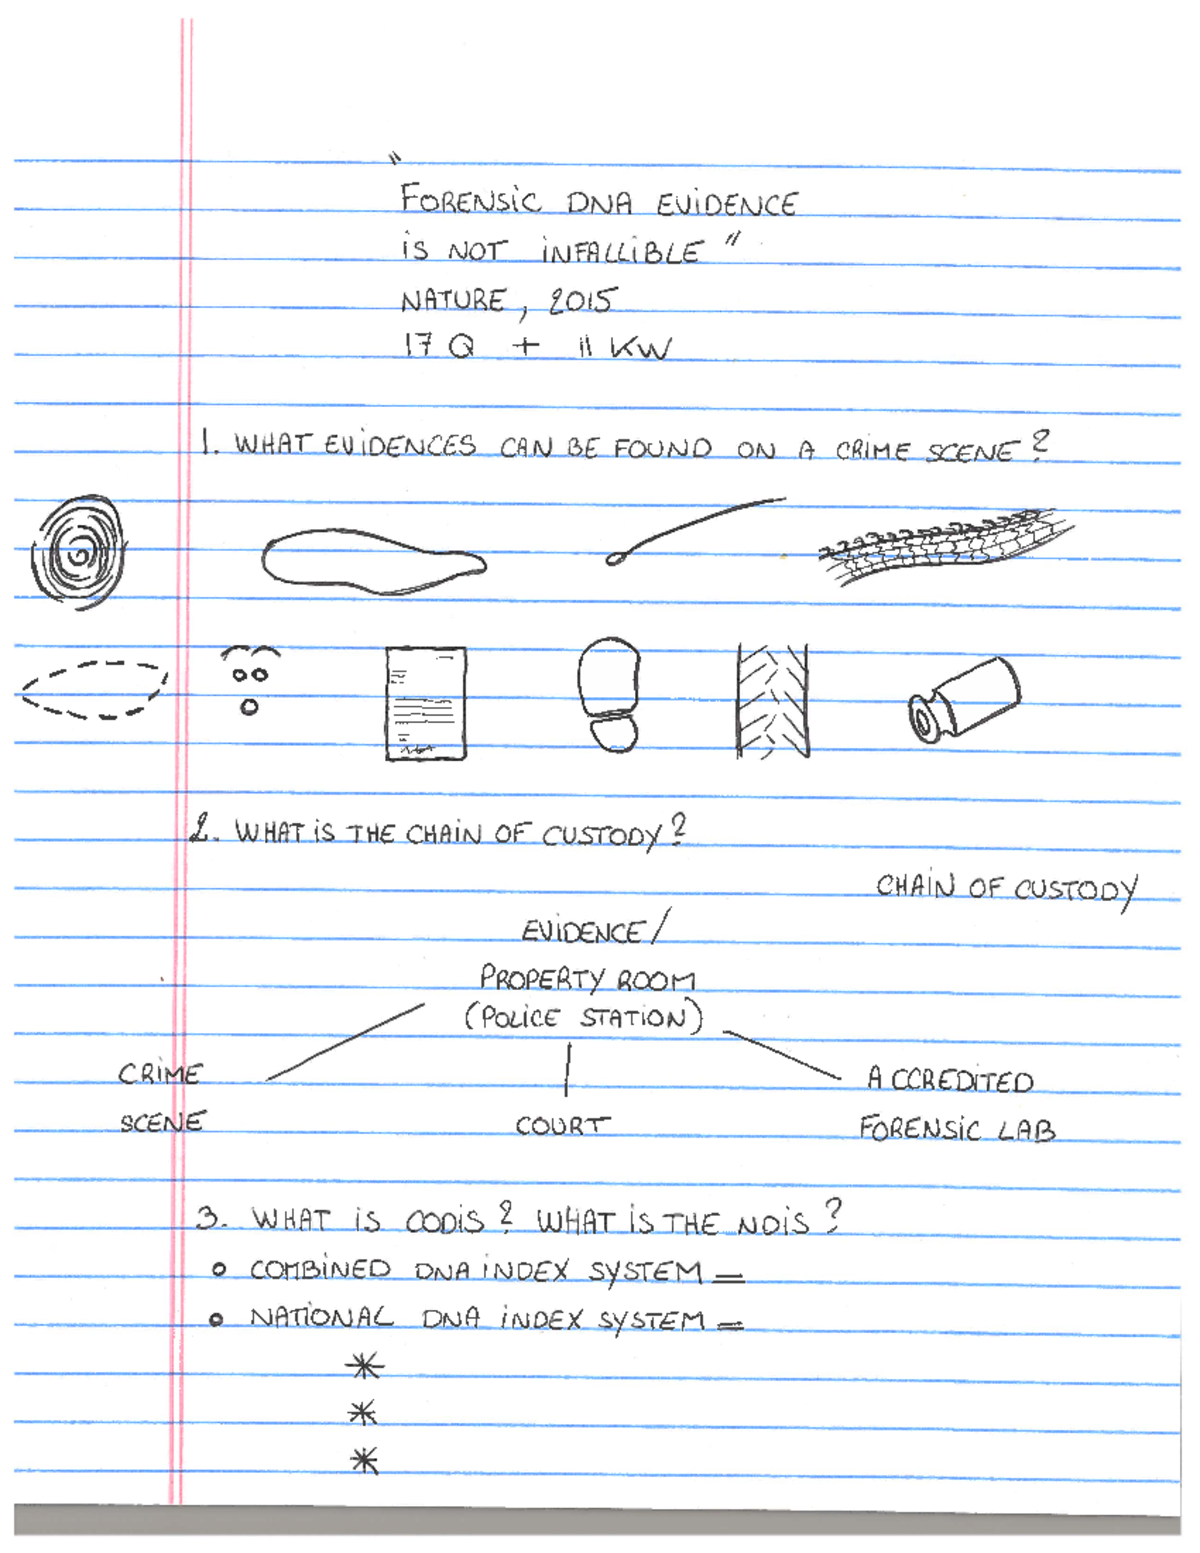 "
FORENSIC DNA EVIDENCE
IS NOT INFALLIBLE"
NATURE, 2015
17 Q + 11 KW
1. WHAT EVIDENCES CAN BE FOUND ON A CRIME SCENE?
2. WHAT IS THE CHAIN OF CUSTODY?
CHAIN OF CUSTODY
EVIDENCE/
PROPERTY ROOM
(POLICE STATION)
CRIME
SCENE
COURT
ACCREDITED
FORENSIC LAB
3. WHAT IS CODIS? WHAT IS THE NDIS?
o COMBINED DNA INDEX SYSTEM =
o NATIONAL DNA INDEX SYSTEM =
*
*
*